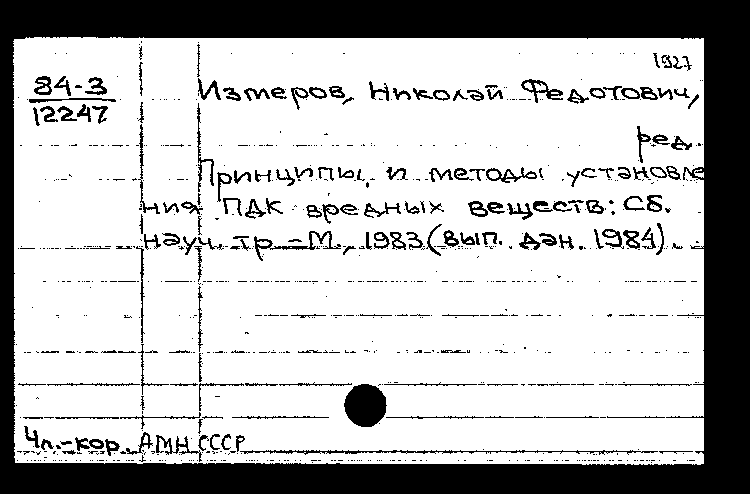 1927
84-3
12247
Измеров, Николай Федотович,
ред.
Принципы и методы установле
ния ПДК вредных веществ: Сб.
науч. тр. - М., 1983 (вып. дан. 1984).
Чл.-кор. АМН СССР